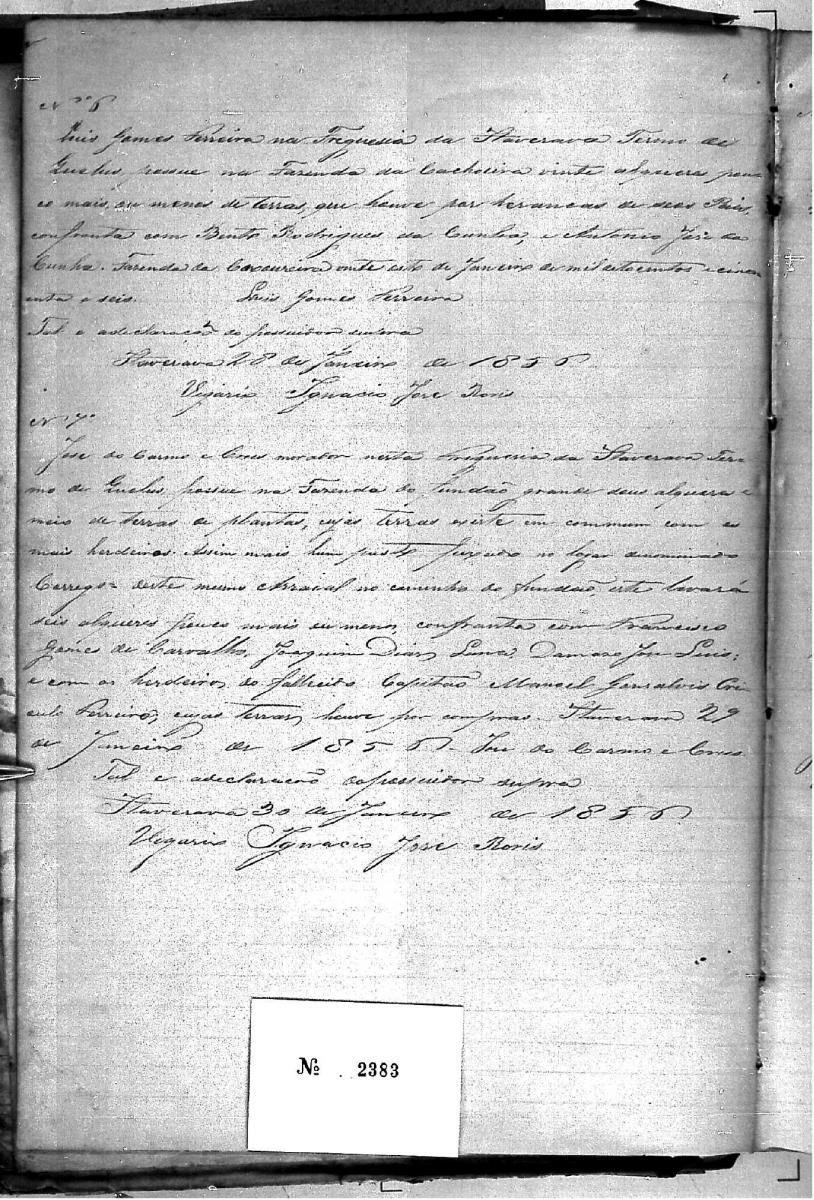 Nº 6
Luis Gomes Ferreira na Freguesia da Itaverava Termo de
Queluz, possue na Fazenda da Cachoeira vinte alqueres pou
co mais, ou menos de terras, que houve por heranças de seos Pais,
confronta com Bento Rodrigues da Cunha, e Antonio José da
Cunha. Fazenda da Cachoeira vinte oito de Janeiro de mil oitocentos e cinco
enta e seis. Luis Gomes Ferreira
Tal e adeclaração do possuidor supra
Itaverava 28 de Janeiro de 1856
Vigario Ignacio José
Nº 7º
José do Carmo e morador nesta Freguesia da Itaverava Ter
mo de Queluz, possue na Fazenda do fundão grande seus alqueres e
meio de terras de plantas, cujas terras existe em commum com os
mais herdeiros. Assim mais hum pasto no lugar denominado
Corrego = deste mesmo Arraial no caminho do fundão, este levará
seis alqueres pouco mais ou menos, confronta com Francisco
Gomes de Carvalho, Joaquim Dias Lana, Damaso José Luis;
e com os herdeiros do fallecido Capitão Manoel Gonsalvis
Ferreira, cujas terras, houve por compras. Itaverava 29
de Janeiro de 1856. José do Carmo e
Tal e adeclaração dopossuidor supra
Itaverava 30 de Janeiro de 1856.
Vigario Ignacio José
№ 2383